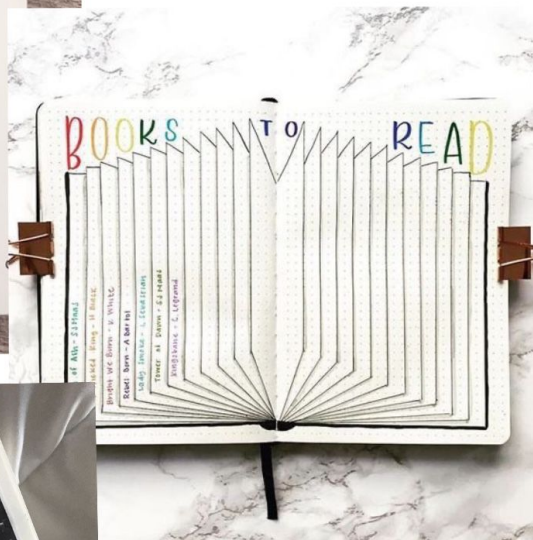 BOOKS TO READ
of Ash - SJ Maas
King - H Black
Bright We Burn - K White
Rebel Born - A Bartol
Lady Smoke - L Sebastian
Tower of Dawn - SJ Maas
Kingsbane - C. Legrand